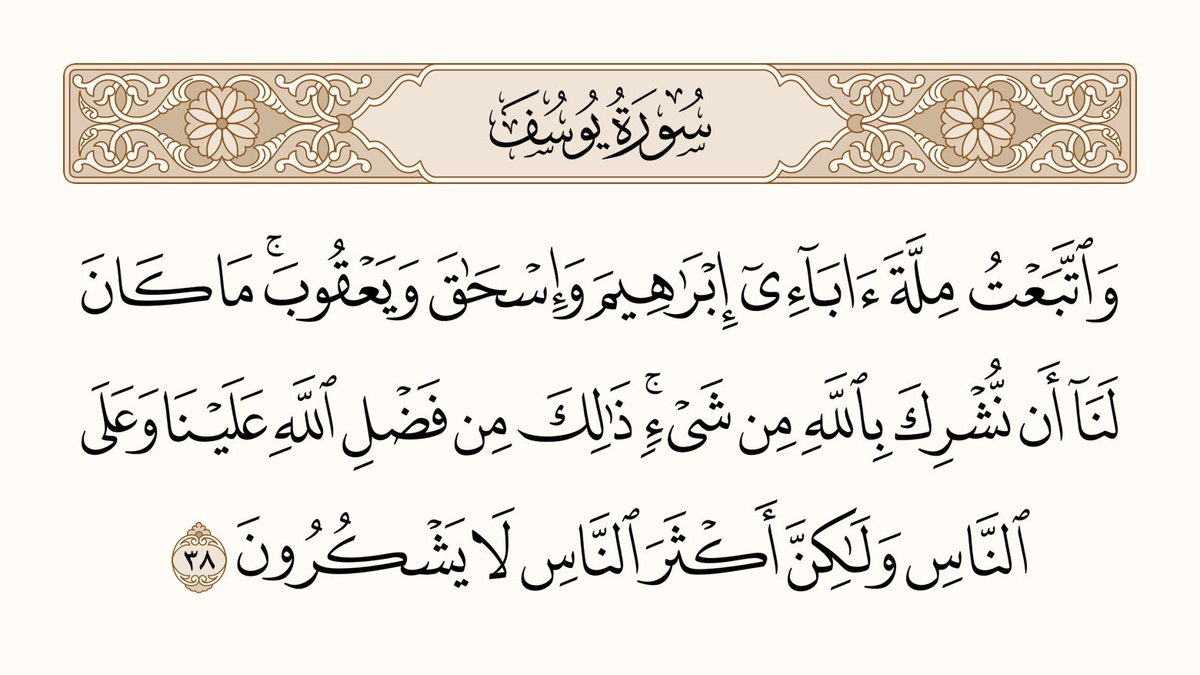 سُورَةُ يُوسُفَ
وَٱتَّبَعۡتُ مِلَّةَ ءَابَآءِىٓ إِبۡرَٰهِيمَ وَإِسۡحَٰقَ وَيَعۡقُوبَۚ مَا كَانَ
لَنَآ أَن نُّشۡرِكَ بِٱللَّهِ مِن شَىۡءٖۚ ذَٰلِكَ مِن فَضۡلِ ٱللَّهِ عَلَيۡنَا وَعَلَى
ٱلنَّاسِ وَلَٰكِنَّ أَكۡثَرَ ٱلنَّاسِ لَا يَشۡكُرُونَ ٣٨